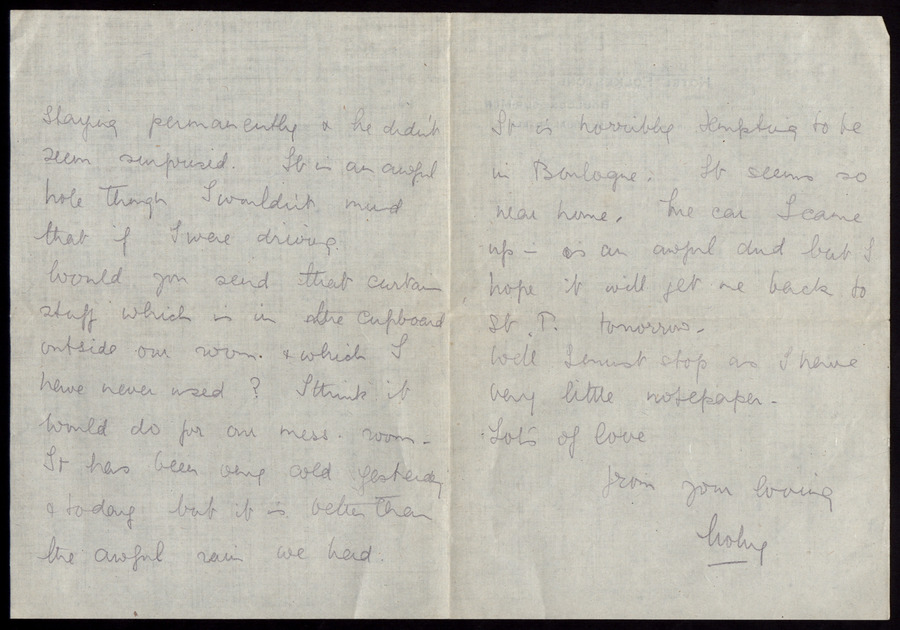 staying permanently & he didn't
seem surprised. It is an awful
hole though I wouldn't mind
that if I were driving.
Would you send that curtain
stuff which is in the cupboard
outside our room. & which I
have never used? I think it
would do for our mess. room -
It has been very cold yesterday
& today but it is better than
the awful rain we had.
It is horribly tempting to be
in Boulogne. It seems so
near home. The car I came
up - is an awful dud but I
hope it will get me back to
St. P. tomorrow -
Well I must stop as I have
very little notepaper -
Lots of love
from your loving